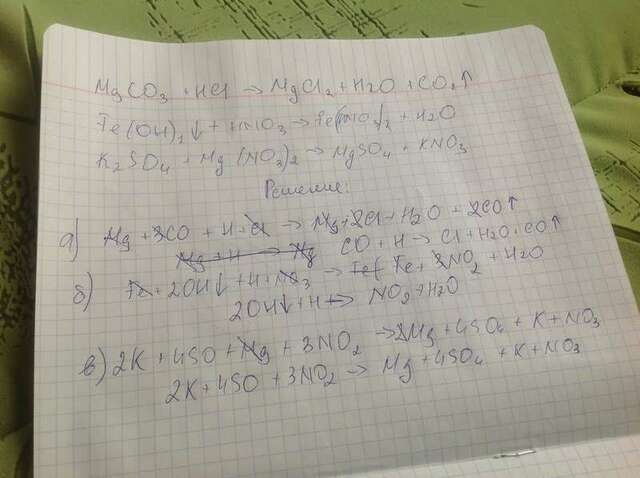 MgCO₃ + HCl → MgCl₂ + H₂O + CO₂↑
Fe(OH)₂↓ + HNO₃ → Fe(NO₃)₂ + H₂O
K₂SO₄ + Mg(NO₃)₂ → MgSO₄ + KNO₃
Решение:
а) Mg + 3CO + H + Cl → Mg + 2Cl + H₂O + 2CO↑
Mg + H → Mg CO + H → Cl + H₂O + CO↑
б) Fe + 2OH↓ + H + NO₃ → Fe + Fe + 3NO₂ + H₂O
2OH↓ + H → NO₂ + H₂O
в) 2K + 4SO + Mg + 3NO₂ → 2Mg + 4SO₄ + K + NO₃
2K + 4SO + 3NO₂ → Mg + 4SO₄ + K + NO₃